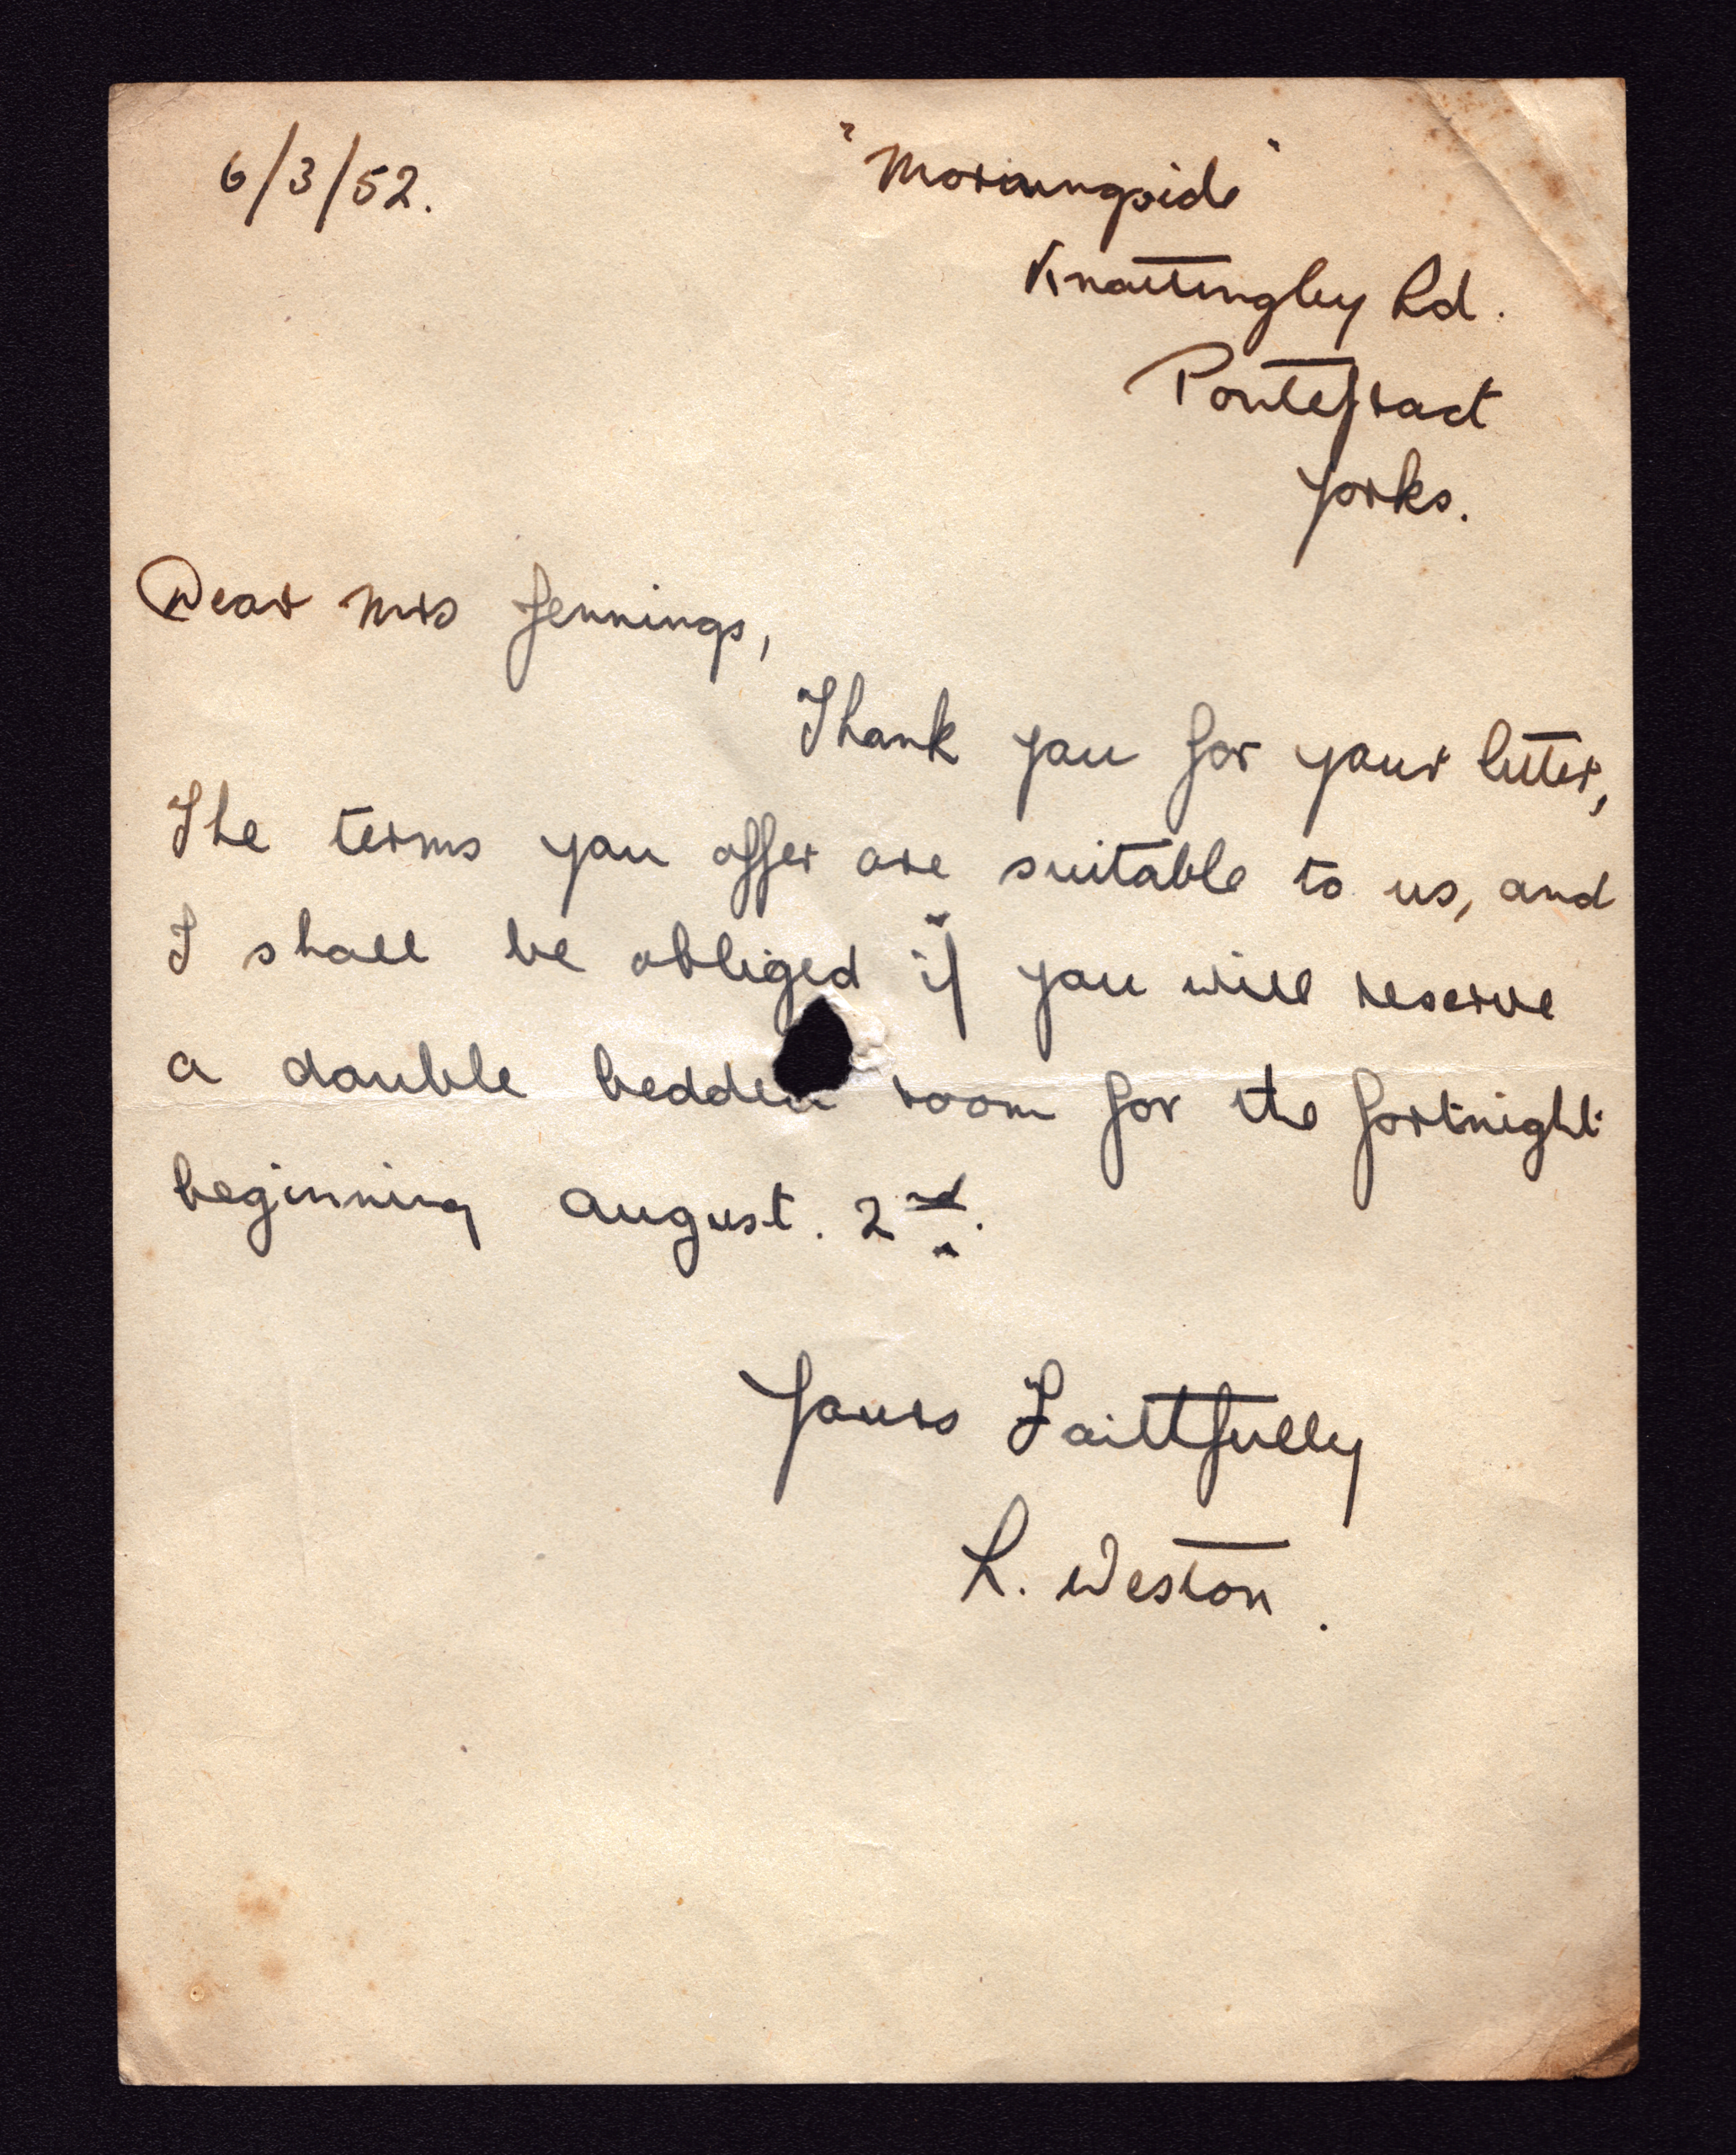 6/3/52.
"Morningside"
Knottingley Rd.
Pontefract
Yorks.
Dear Mrs Jennings,
Thank you for your letter,
The terms you offer are suitable to us, and
I shall be obliged if you will reserve
a double bedded room for the fortnight
beginning August. 2nd.
Yours Faithfully
L. Weston.